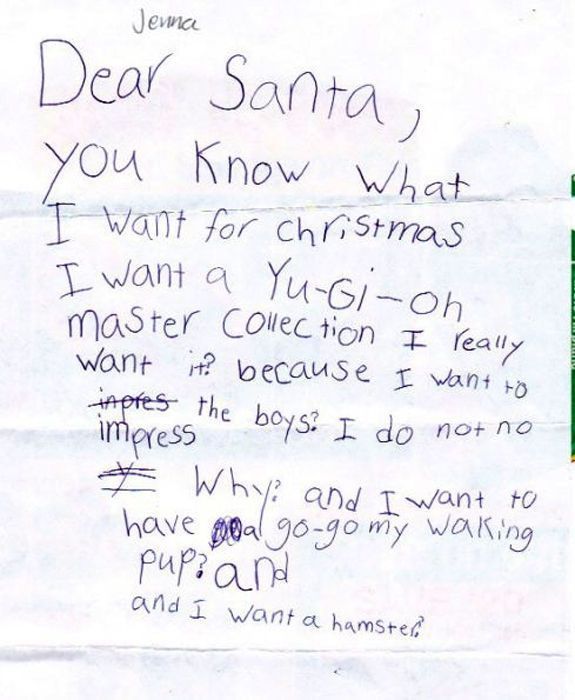 Jenna
Dear Santa,
you Know What
I want for christmas
I want a Yu-Gi-Oh
master collection I really
want it? because I want to
inpres the boys? I do not no
impress
y Why? and I want to
have a go-go my waking
pup? and
and I want a hamster?